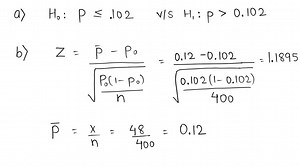 a) H₀: P ≤ .102 v/s H₁: p > 0.102
b) Z = (p̄ − p₀) / √(p₀(1−p₀)/n) = (0.12 − 0.102) / √(0.102(1−0.102)/400) = 1.1895
p̄ = x/n = 48/400 = 0.12